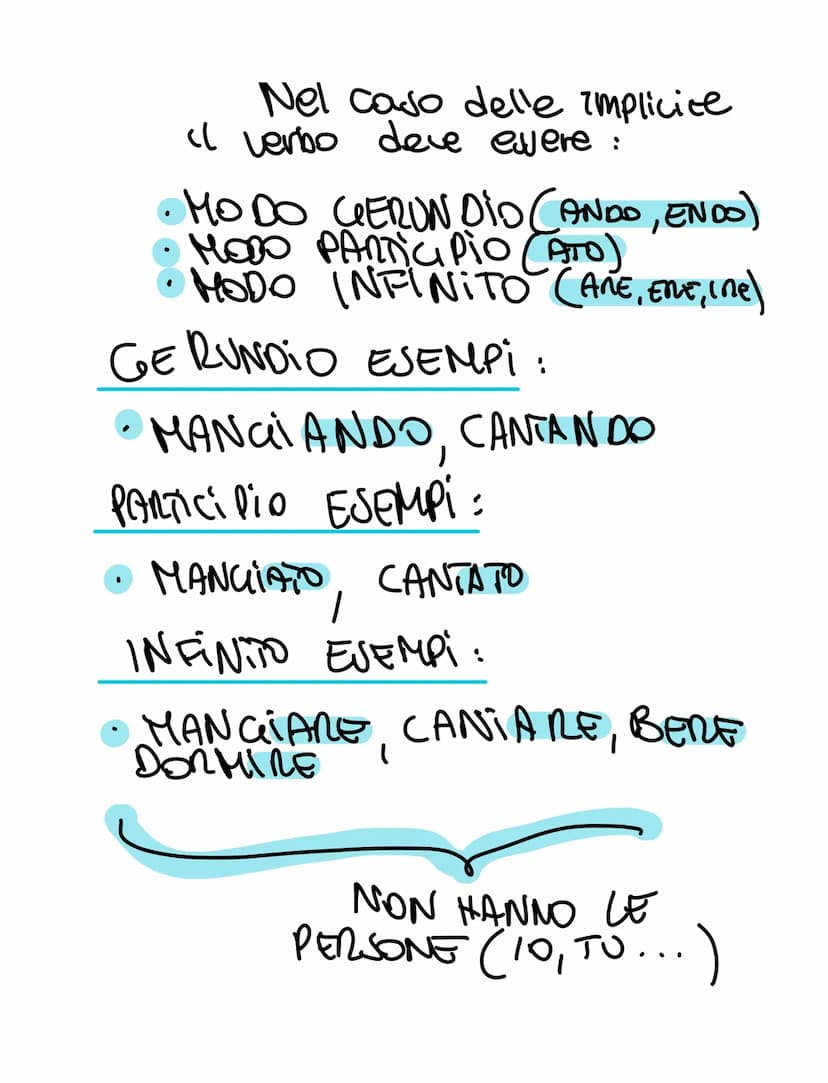 Nel caso delle implicite
il verbo deve essere:
• MODO GERUNDIO (ANDO, ENDO)
• MODO PARTICIPIO (ATO)
• MODO INFINITO (ARE, ERE, IRE)
GERUNDIO ESEMPI:
• MANGIANDO, CANTANDO
PARTICIPIO ESEMPI:
• MANGIATO, CANTATO
INFINITO ESEMPI:
• MANGIARE, CANTARE, BERE
DORMIRE
NON HANNO LE
PERSONE (IO, TU...)